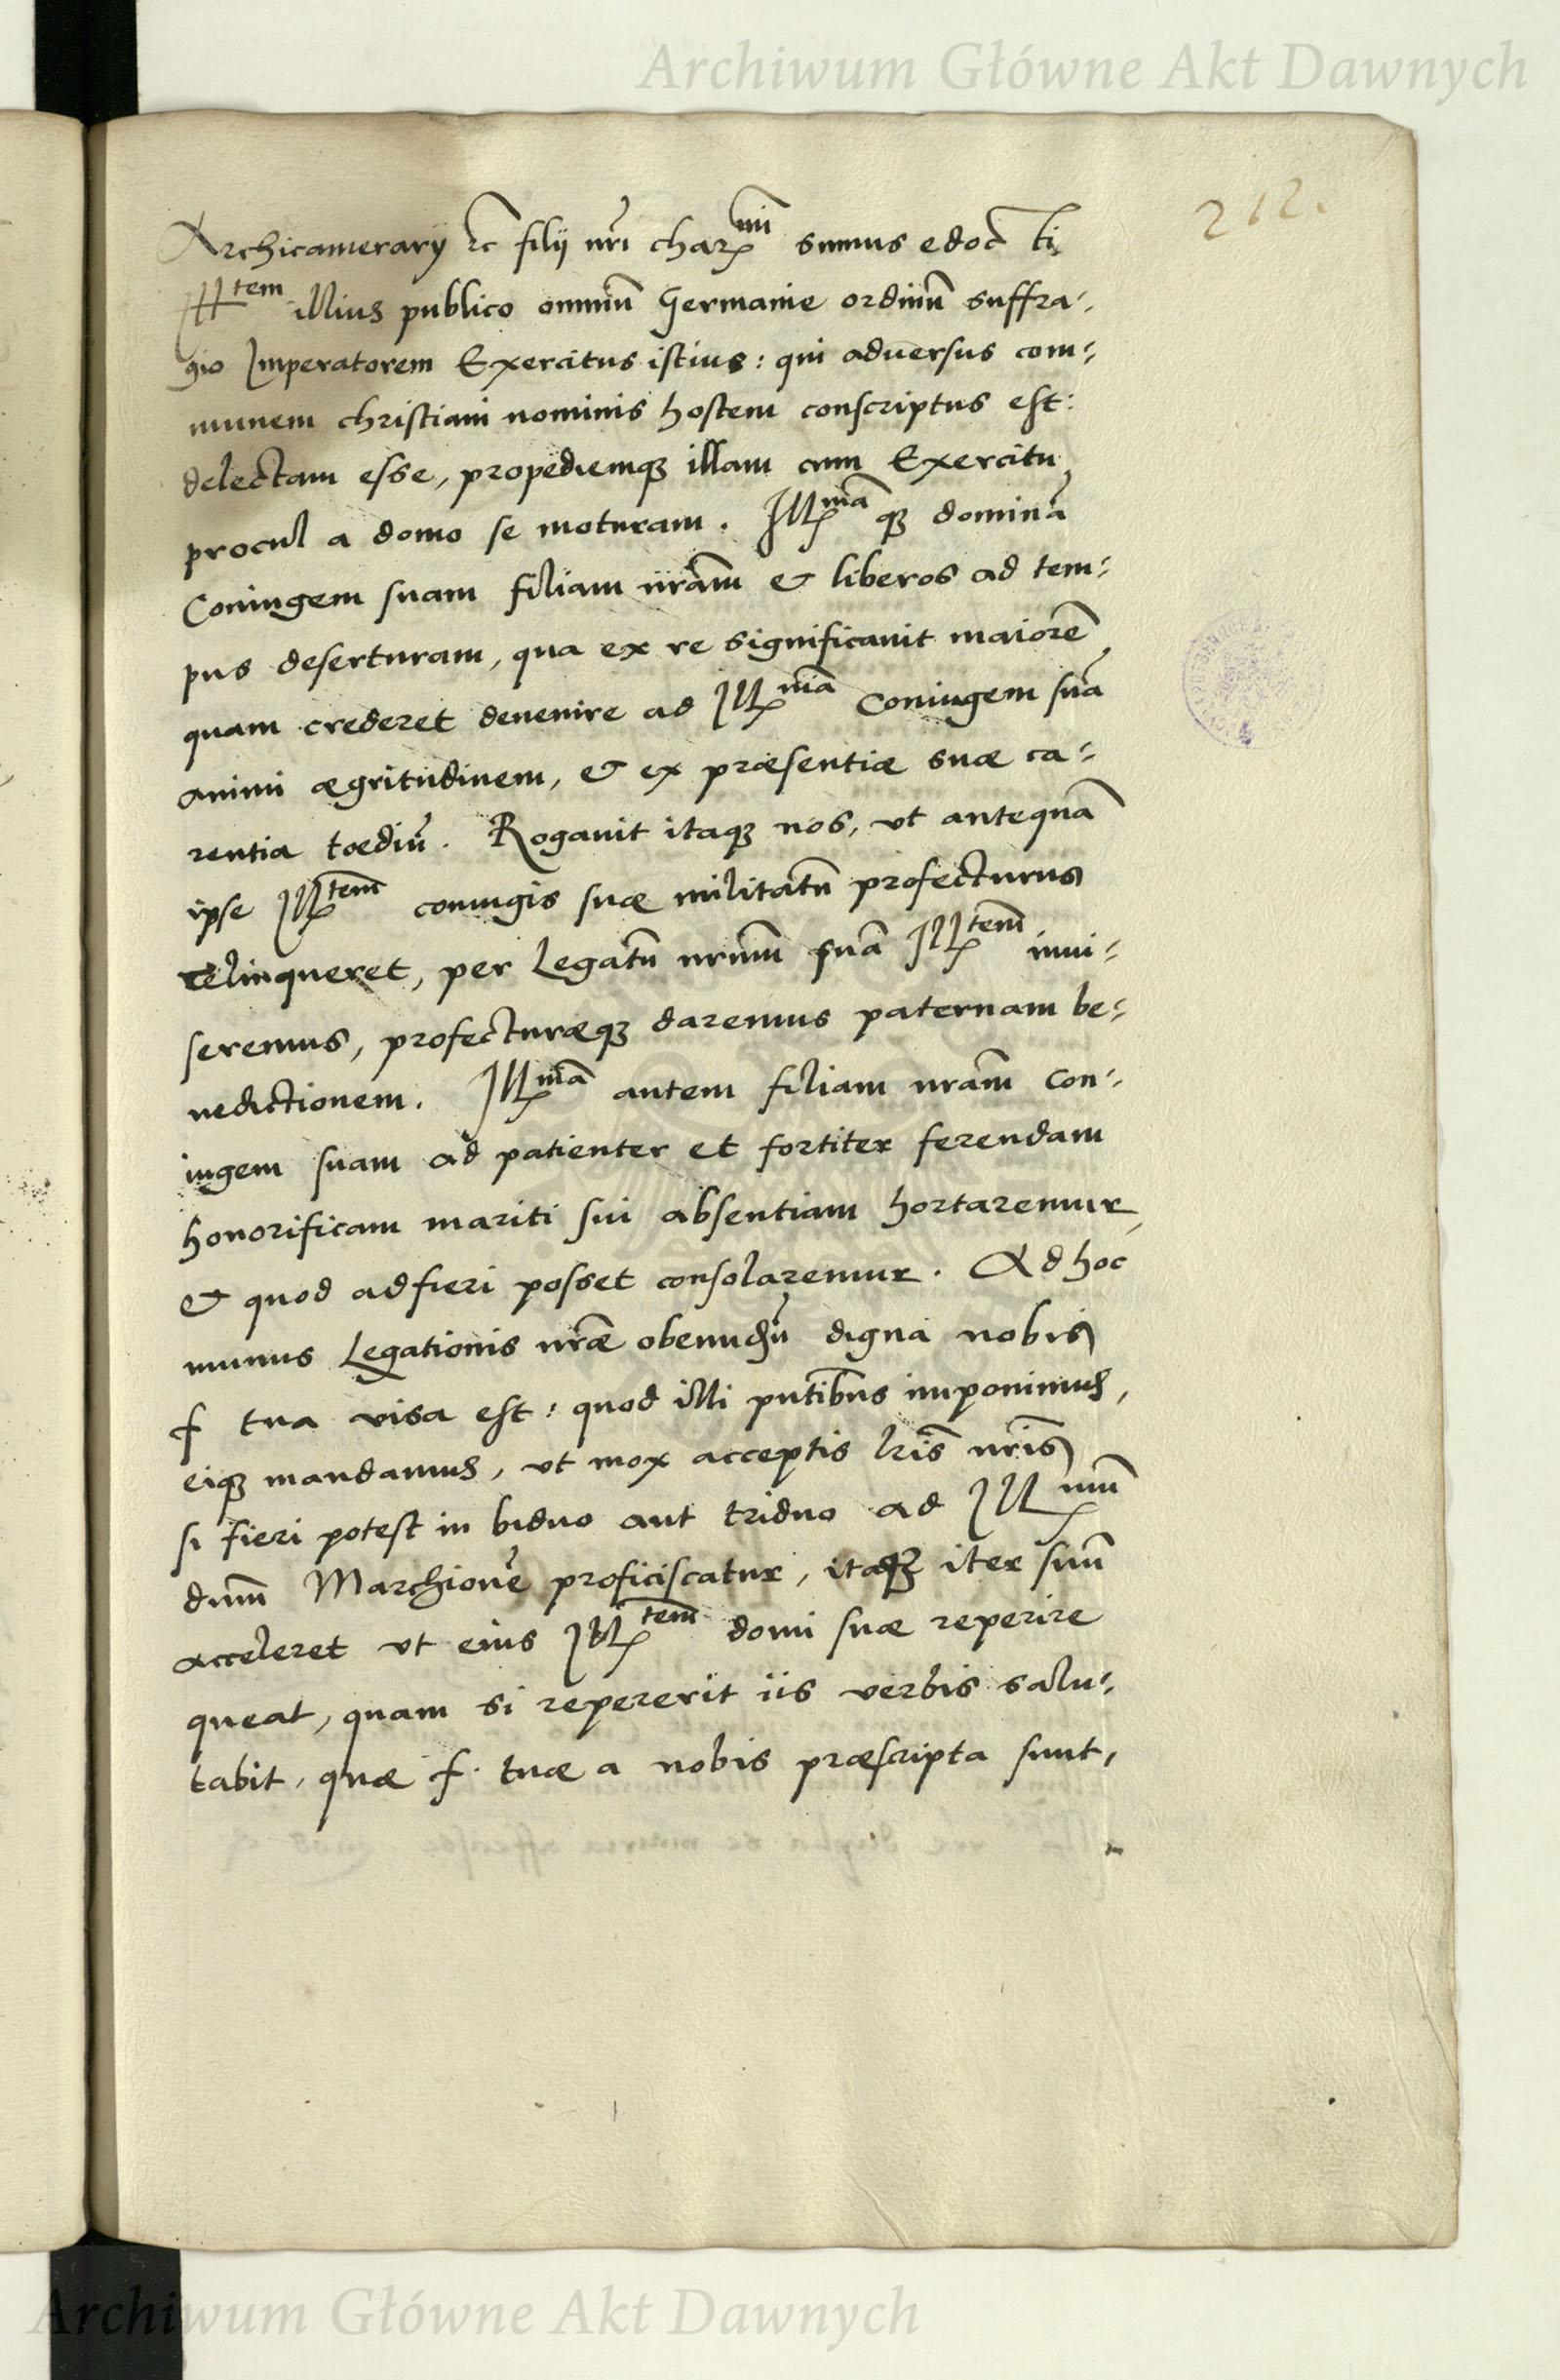 Archiwum Główne Akt Dawnych
212.
Archicamerarij &c filij nr̃i char^mi sumus edocti
Ill^tem illius publico omniũ Germanie ordinũ suffra-
gio Imperatorem Exercitus istius: qui adversus com-
munem christiani nominis hostem conscriptus est:
delectam esse, propediemq; illam cum Exercitu
procul a domo se moturam. Ill^ma q; dominã
Coniugem suam filiam nr̃am & liberos ad tem-
pus deserturam, qua ex re significavit maiorẽ
quam crederet devenire ad Ill^ma Coniugem suã
animi ægritudinem, & ex præsentiæ suæ ca-
rentia tœdiũ. Rogavit itaq; nos, ut antequã
ipse Ill^tem coniugis suæ militatũ profecturus
relinqueret, per Legatũ nr̃um suã Ill^tem invi-
seremus, profecturæq; daremus paternam be-
nedictionem. Ill^ma autem filiam nr̃am con-
iugem suam ad patienter et fortiter ferendam
honorificam mariti sui absentiam hortaremur,
& quod ad fieri posset consolaremur. Ad hoc
munus Legationis nr̃æ obeundũ digna nobis
f tua visa est: quod illi pñtibus imponimus,
eiq; mandamus, ut mox acceptis lr̃is nr̃is
si fieri potest in biduo aut triduo ad Ill^mum
dnũm Marchionẽ proficiscatur, itaq; iter suũ
acceleret ut eius Ill^tem domi suæ reperire
queat, quam si repererit iis verbis salu-
tabit, quæ f. tuæ a nobis præscripta sunt,
Archiwum Główne Akt Dawnych